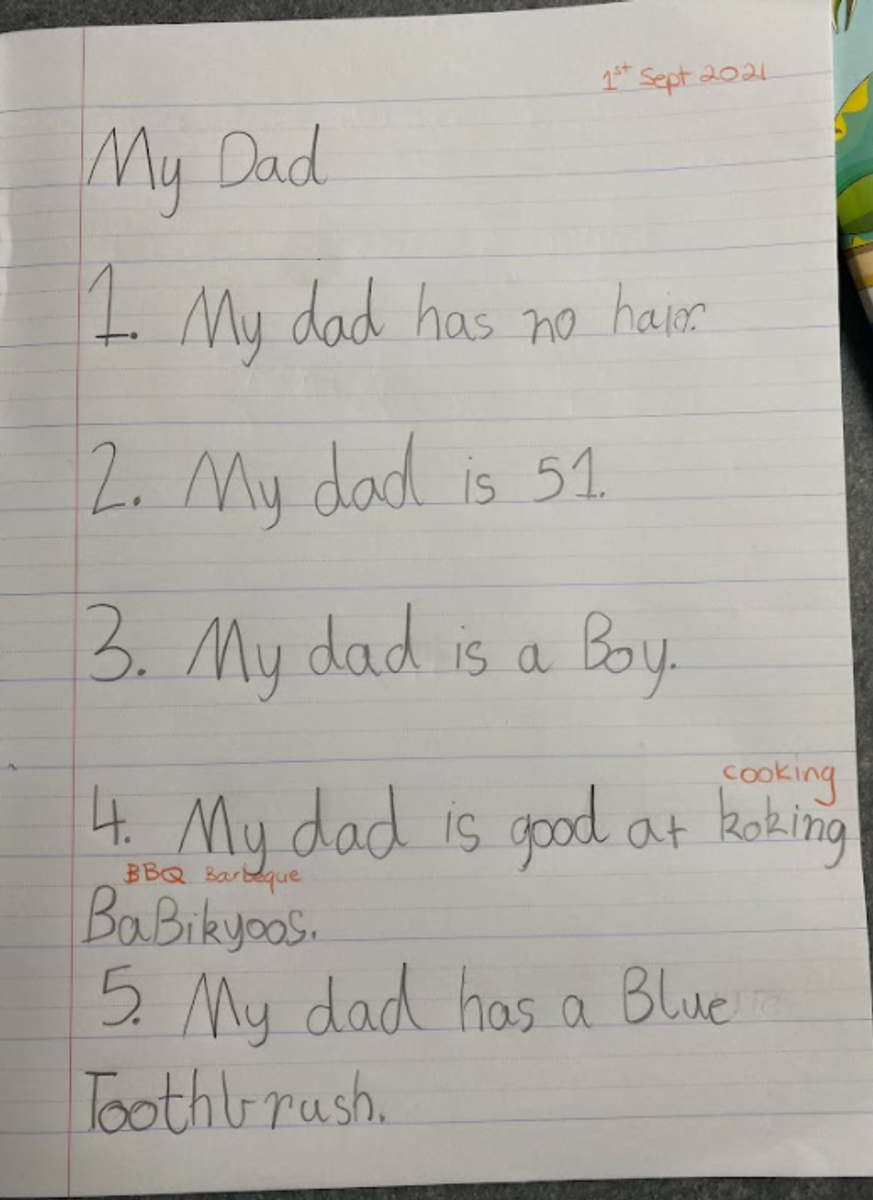 1st Sept 2021
My Dad
1. My dad has no hair.
2. My dad is 51.
3. My dad is a Boy.
cooking
4. My dad is good at koking
BBQ Barbeque
BaBikyoos.
5. My dad has a Blue
Toothbrush.